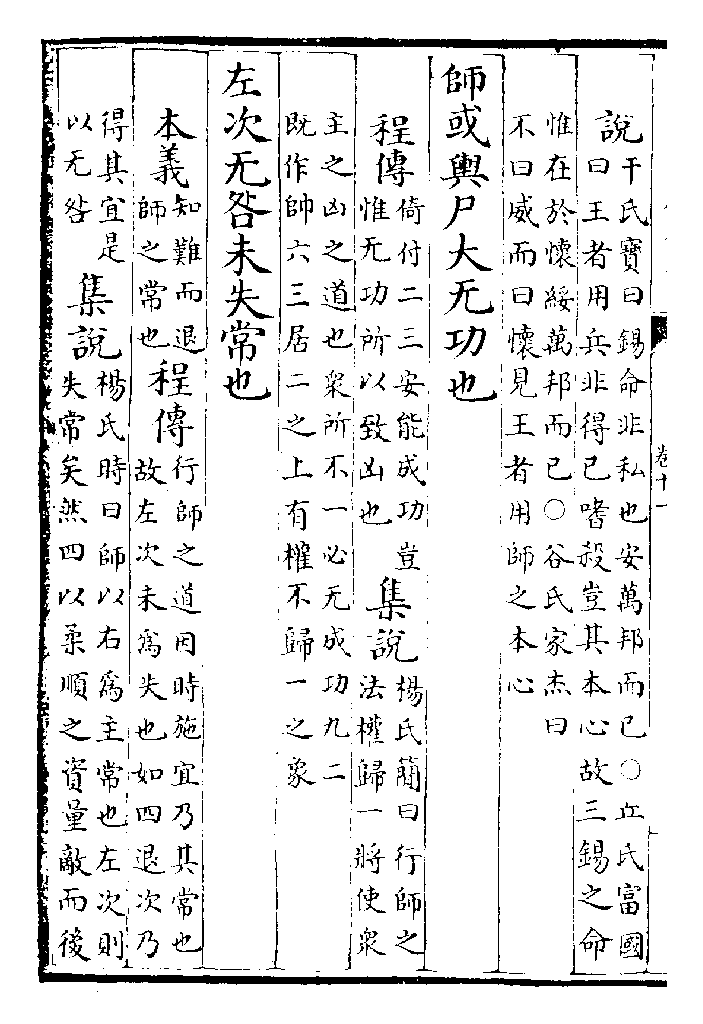 卷十一
說
干氏寶曰錫命非私也安萬邦而已○丘氏富國
曰王者用兵非得已嗜殺豈其本心故三錫之命
惟在於懷綏萬邦而已○谷氏家杰曰
不曰威而曰懷見王者用師之本心
師或輿尸大无功也
程傳
倚付二三安能成功豈
惟无功所以致凶也
集說
楊氏簡曰行師之
法權歸一將使衆
主之凶之道也衆所不一必无成功九二
既作帥六三居二之上有權不歸一之象
左次无咎未失常也
本義
知難而退
師之常也
程傳
行師之道因時施宜乃其常也
故左次未爲失也如四退次乃
得其宜是
以无咎
集說
楊氏時曰師以右爲主常也左次則
失常矣然四以柔順之資量敵而後